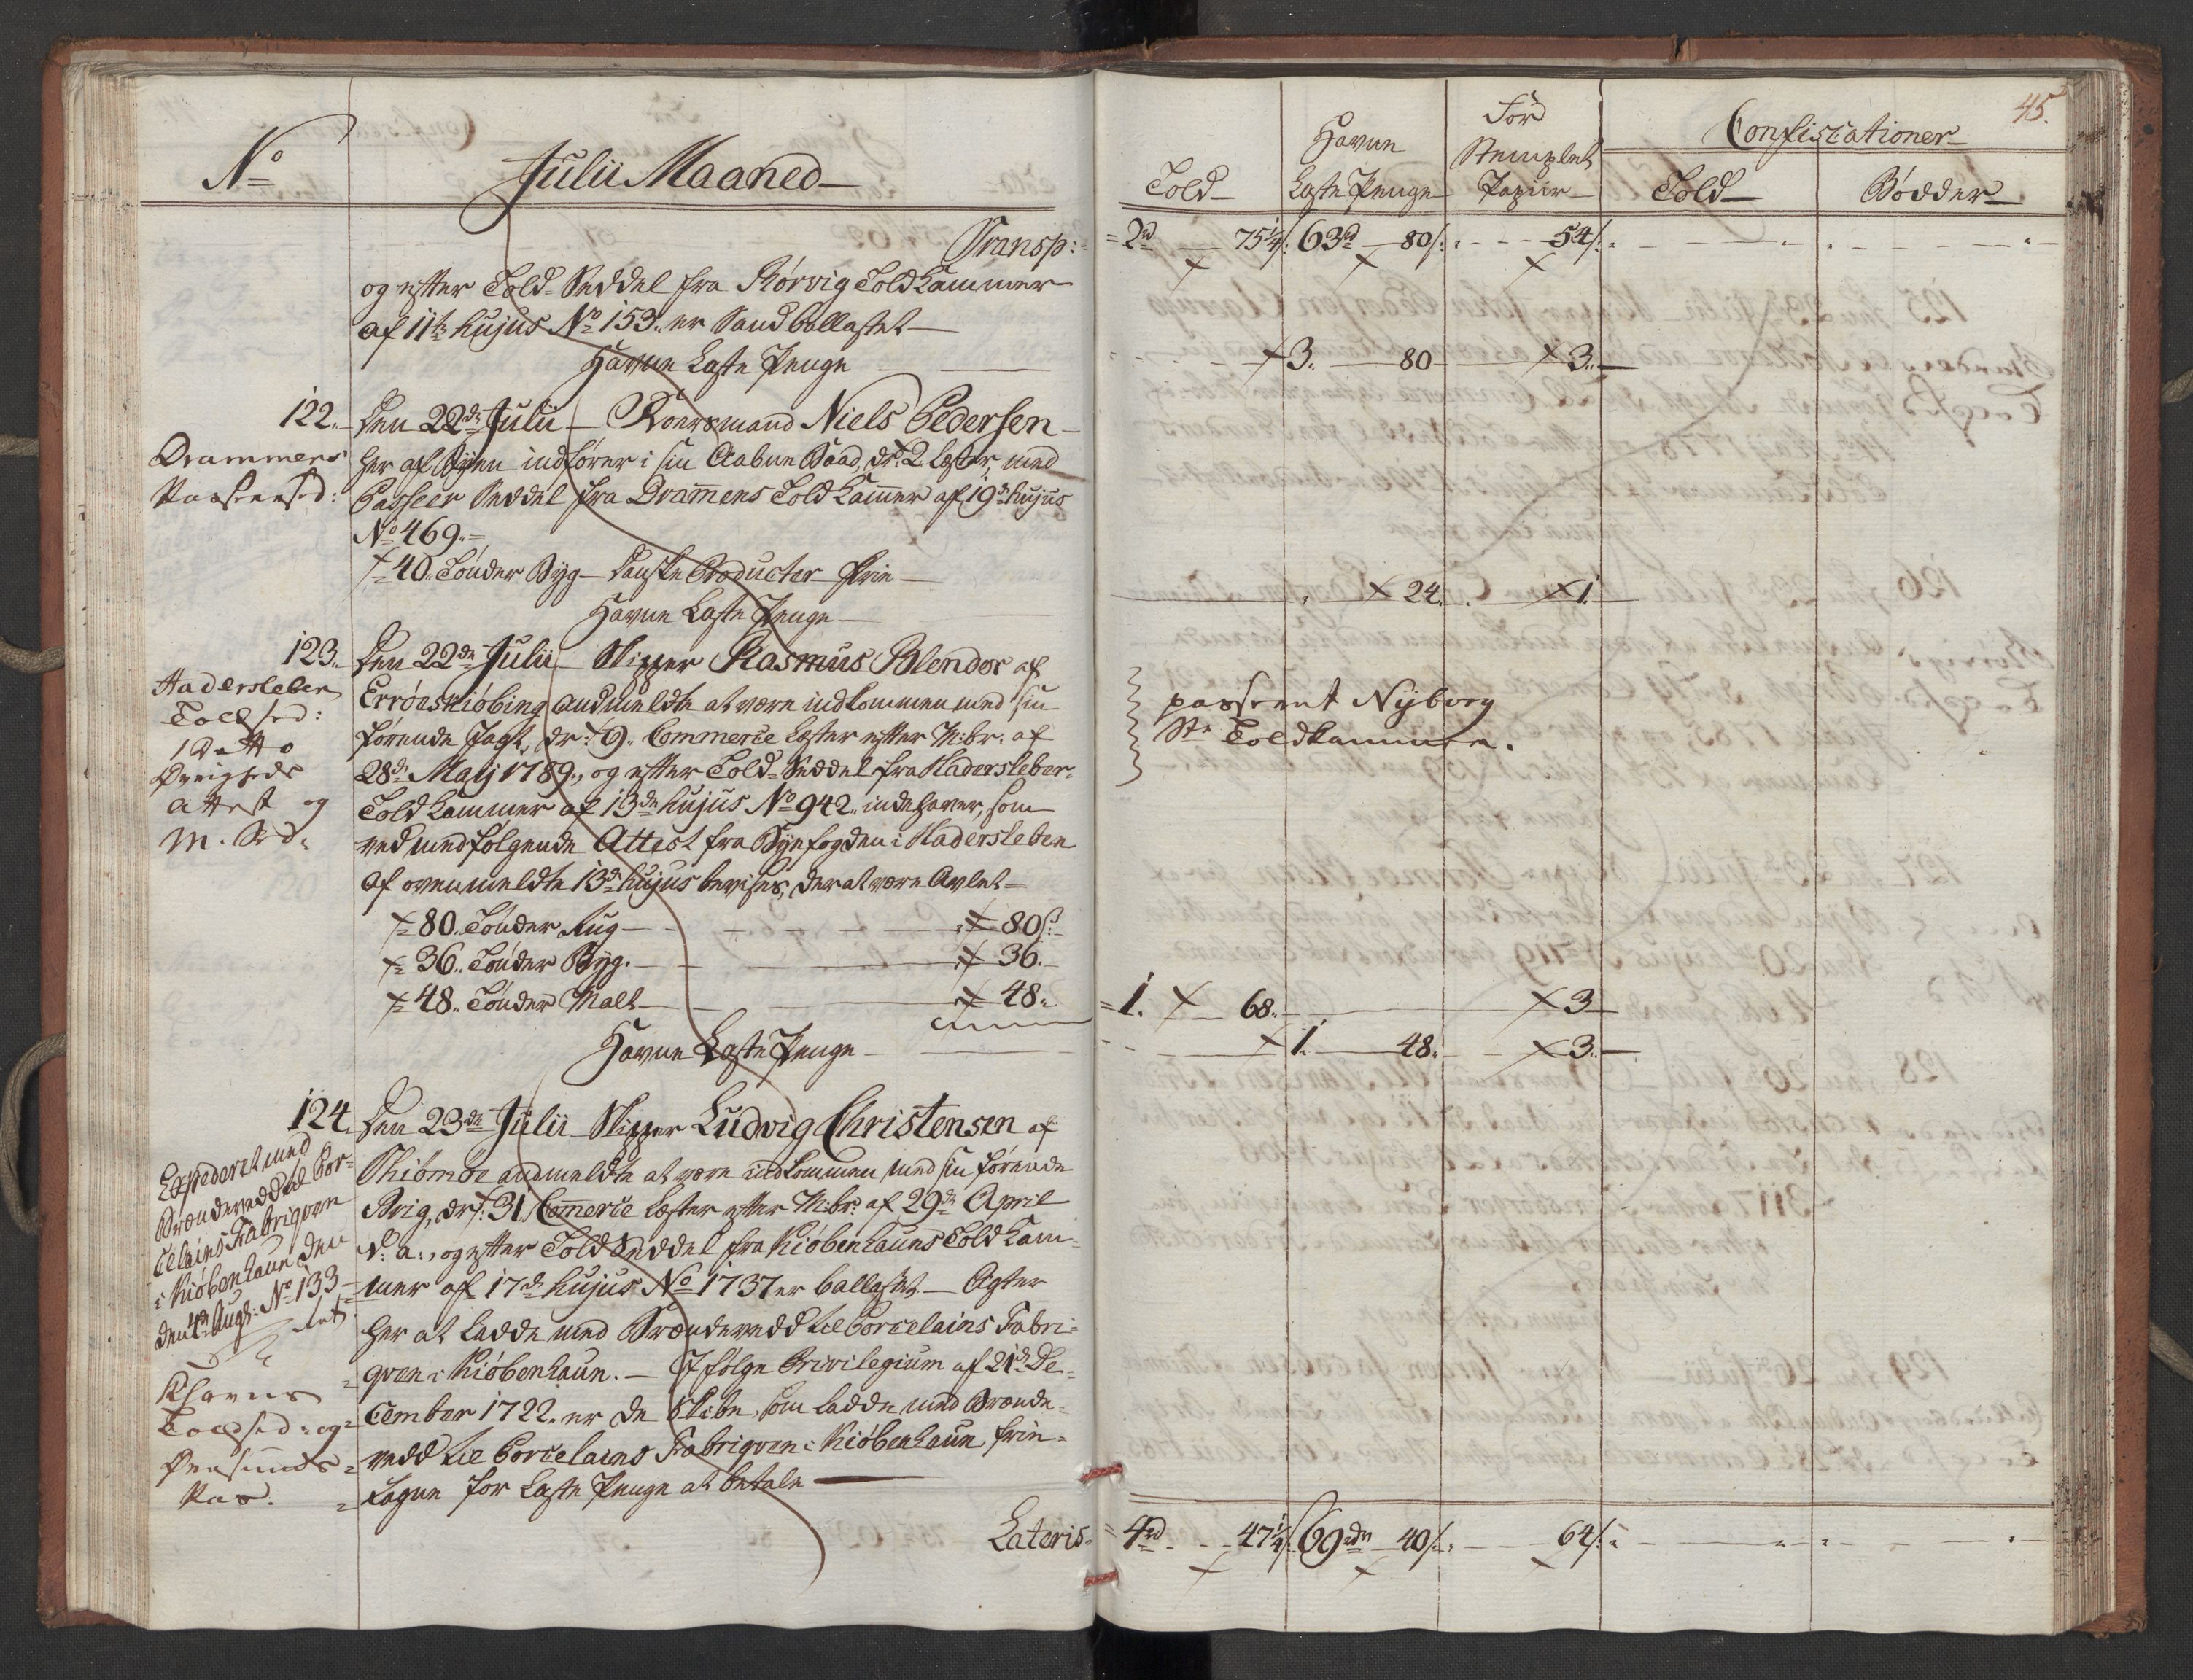 No
Julii Maaned
Transp:
og efter Told-Seddel fra Rørvig Told Kammer
af 11te hujus No 153. er Sandballastet
Havne Laste Penge
122.
Den 22de Julii - Roersmand Niels Pedersen
Drammens
Passeersed:
her af Byen indfører i sin Aabne Baad, dr. 2 Læster, med
Passeer Seddel fra Dramens Told Kamer af 19de hujus
No 469.
40. Tønder Byg - Danske Producter frie
Havne Laste Penge
123.
Den 22de Julii - Skipper Rasmus Blendor af
Hadersleben
Toldsed:
1 Ditto
Øvrigheds
Attest og
M. Br.
Erröeskiöbing andmeldte at være indkommen med sin
førende Jagt, dr: 9. Commerce Læster efter M:br: af
28de Maij 1789., og efter Told-Seddel fra Hadersleber
Told Kammer af 13de hujus No 942. indehaver, som
ved medfølgende Attest fra Byefogden i Haderslebe
af ovenmeldte 13de hujus bevises, der at være Avlet
80. Tønder Rug - 80 s:
36. Tønder Byg. - 36.
48. Tønder Malt - 48.
Havne Laste Penge
124.
Den 23de Julii Skipper Ludvig Christensen af
Expederet med
Brændevedd til Por-
celains Fabriqven
i Kiøbenhavn den
den 4de Aug: No 133
Khavns
Toldsed: og
Øresunds
Pas.
Thiömöe andmeldte at være indkommen med sin førende
Brig, dr: 31 Comerce Læster efter M:br: af 29de April
d: a:, og efter Told Seddel fra Kiøbenhavns Told Kam-
mer af 17de hujus No 1737 er ballastet. - Agter
her at ladde med Brændevedd til Porcelains Fabri-
qven i Kiøbenhavn. - I følge Privilegium af 21de De-
cember 1722. er de Skibe, som ladde med Brænde-
vedd til Porcelains Fabriqven i Kiøbenhavn frie-
tagne for Laste Penge at betale
Lateris
45.
Told
Havne
Laste Penge
For
Stemplet
Papiir
Confiscationer
Told
Bødder
2rd 75 1/4 s: 63rd 80 s: 54 s:
3. 80 3.
24. 1.
passeret Nyborg
Toldkammer.
1. 68. 3
1. 48. 3.
4rd 47 1/4 s: 69rdr 40 s: 64 s: